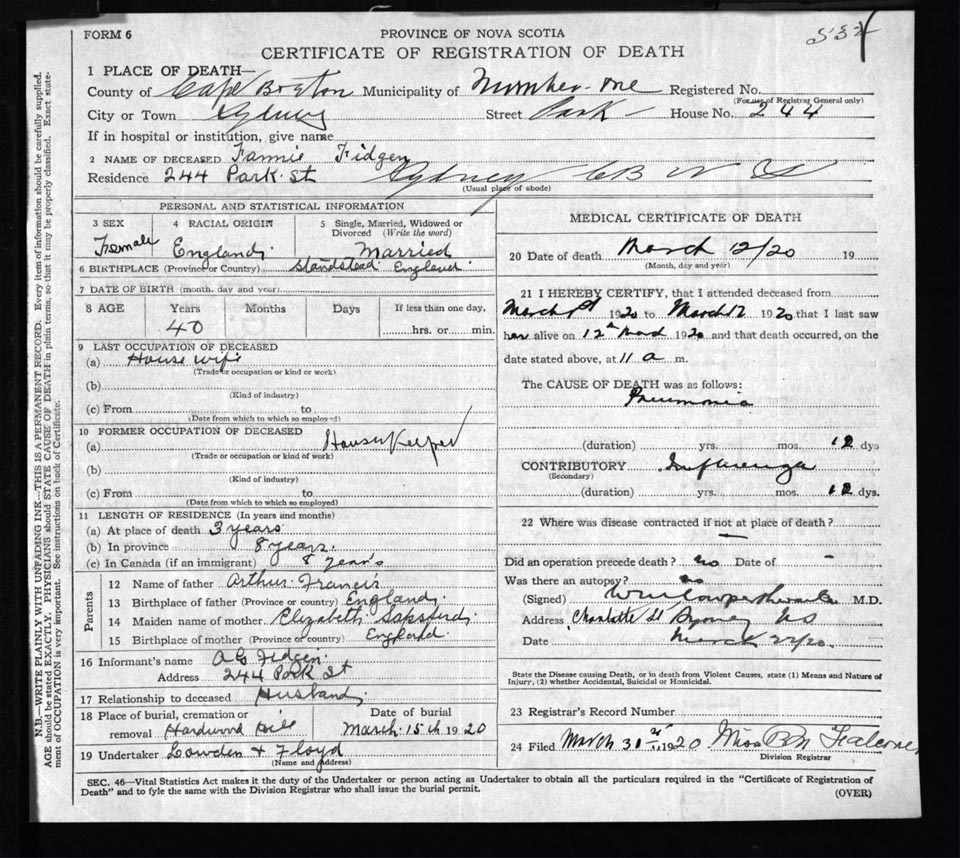 FORM 6
PROVINCE OF NOVA SCOTIA
532
CERTIFICATE OF REGISTRATION OF DEATH
1 PLACE OF DEATH—
County of Cape Breton Municipality of Number-one Registered No.
(For use of Registrar General only)
City or Town Sydney Street Park House No. 244
If in hospital or institution, give name
2 NAME OF DECEASED Fannie Fidgen
Residence 244 Park St Sydney CB N S
(Usual place of abode)
PERSONAL AND STATISTICAL INFORMATION
3 SEX 4 RACIAL ORIGIN 5 Single, Married, Widowed or Divorced (Write the word)
Female England Married
6 BIRTHPLACE (Province or Country) Standstead England
7 DATE OF BIRTH (month, day and year)
8 AGE Years Months Days If less than one day,
40 hrs. or min.
9 LAST OCCUPATION OF DECEASED
(a) House wife
(Trade or occupation or kind or work)
(b)
(Kind of industry)
(c) From to
(Date from which to which so employed)
10 FORMER OCCUPATION OF DECEASED
(a) House Keeper
(Trade or occupation or kind of work)
(b)
(Kind of industry)
(c) From to
(Date from which to which so employed)
11 LENGTH OF RESIDENCE (In years and months)
(a) At place of death 3 years
(b) In province 8 years.
(c) In Canada (if an immigrant) 8 year's
Parents
12 Name of father Arthur Francis
13 Birthplace of father (Province or country) England
14 Maiden name of mother Elizabeth
15 Birthplace of mother (Province or country) England
16 Informant's name A G Fidgen
Address 244 Park St
17 Relationship to deceased Husband
18 Place of burial, cremation or removal Hardwood Hill
Date of burial March 15th 1920
19 Undertaker Lowden & Floyd
(Name and Address)
MEDICAL CERTIFICATE OF DEATH
20 Date of death March 12/20 19
(Month, day and year)
21 I HEREBY CERTIFY, that I attended deceased from
March 1st 1920 to March 12 1920 that I last saw
her alive on 12th March 1920 and that death occurred, on the
date stated above, at 11 a m.
The CAUSE OF DEATH was as follows:
Pneumonia
(duration) yrs. mos. 12 dys
CONTRIBUTORY Influenza
(Secondary)
(duration) yrs. mos. 12 dys.
22 Where was disease contracted if not at place of death?
—
Did an operation precede death? no Date of -
Was there an autopsy? no
(Signed) M.D.
Address Charlotte St Sydney NS
Date March 22/20.
State the Disease causing Death, or in death from Violent Causes, state (1) Means and Nature of
Injury, (2) whether Accidental, Suicidal or Homicidal.
23 Registrar's Record Number
24 Filed March 31st 1920 Miss
Division Registrar
SEC. 46—Vital Statistics Act makes it the duty of the Undertaker or person acting as Undertaker to obtain all the particulars required in the "Certificate of Registration of
Death" and to fyle the same with the Division Registrar who shall issue the burial permit.
(OVER)
N.B.—WRITE PLAINLY WITH UNFADING INK—THIS IS A PERMANENT RECORD. Every item of information should be carefully supplied.
AGE should be stated EXACTLY. PHYSICIANS should STATE CAUSE OF DEATH in plain terms, so that it may be properly classified. Exact state-
ment of OCCUPATION is very important. See instructions on back of Certificate.